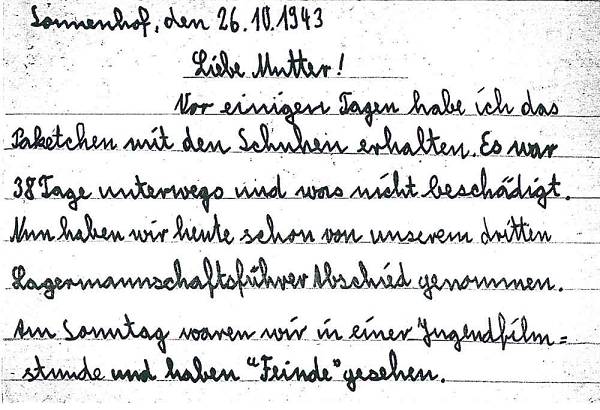 Sonnenhof, den 26.10.1943
Liebe Mutter!
Vor einigen Tagen habe ich das
Paketchen mit den Schuhen erhalten. Es war
38 Tage unterwegs und war nicht beschädigt.
Nun haben wir heute schon von unserem dritten
Lagermannschaftsführer Abschied genommen.
Am Sonntag waren wir in einer Jugendfilm=
stunde und haben "Feinde" gesehen.